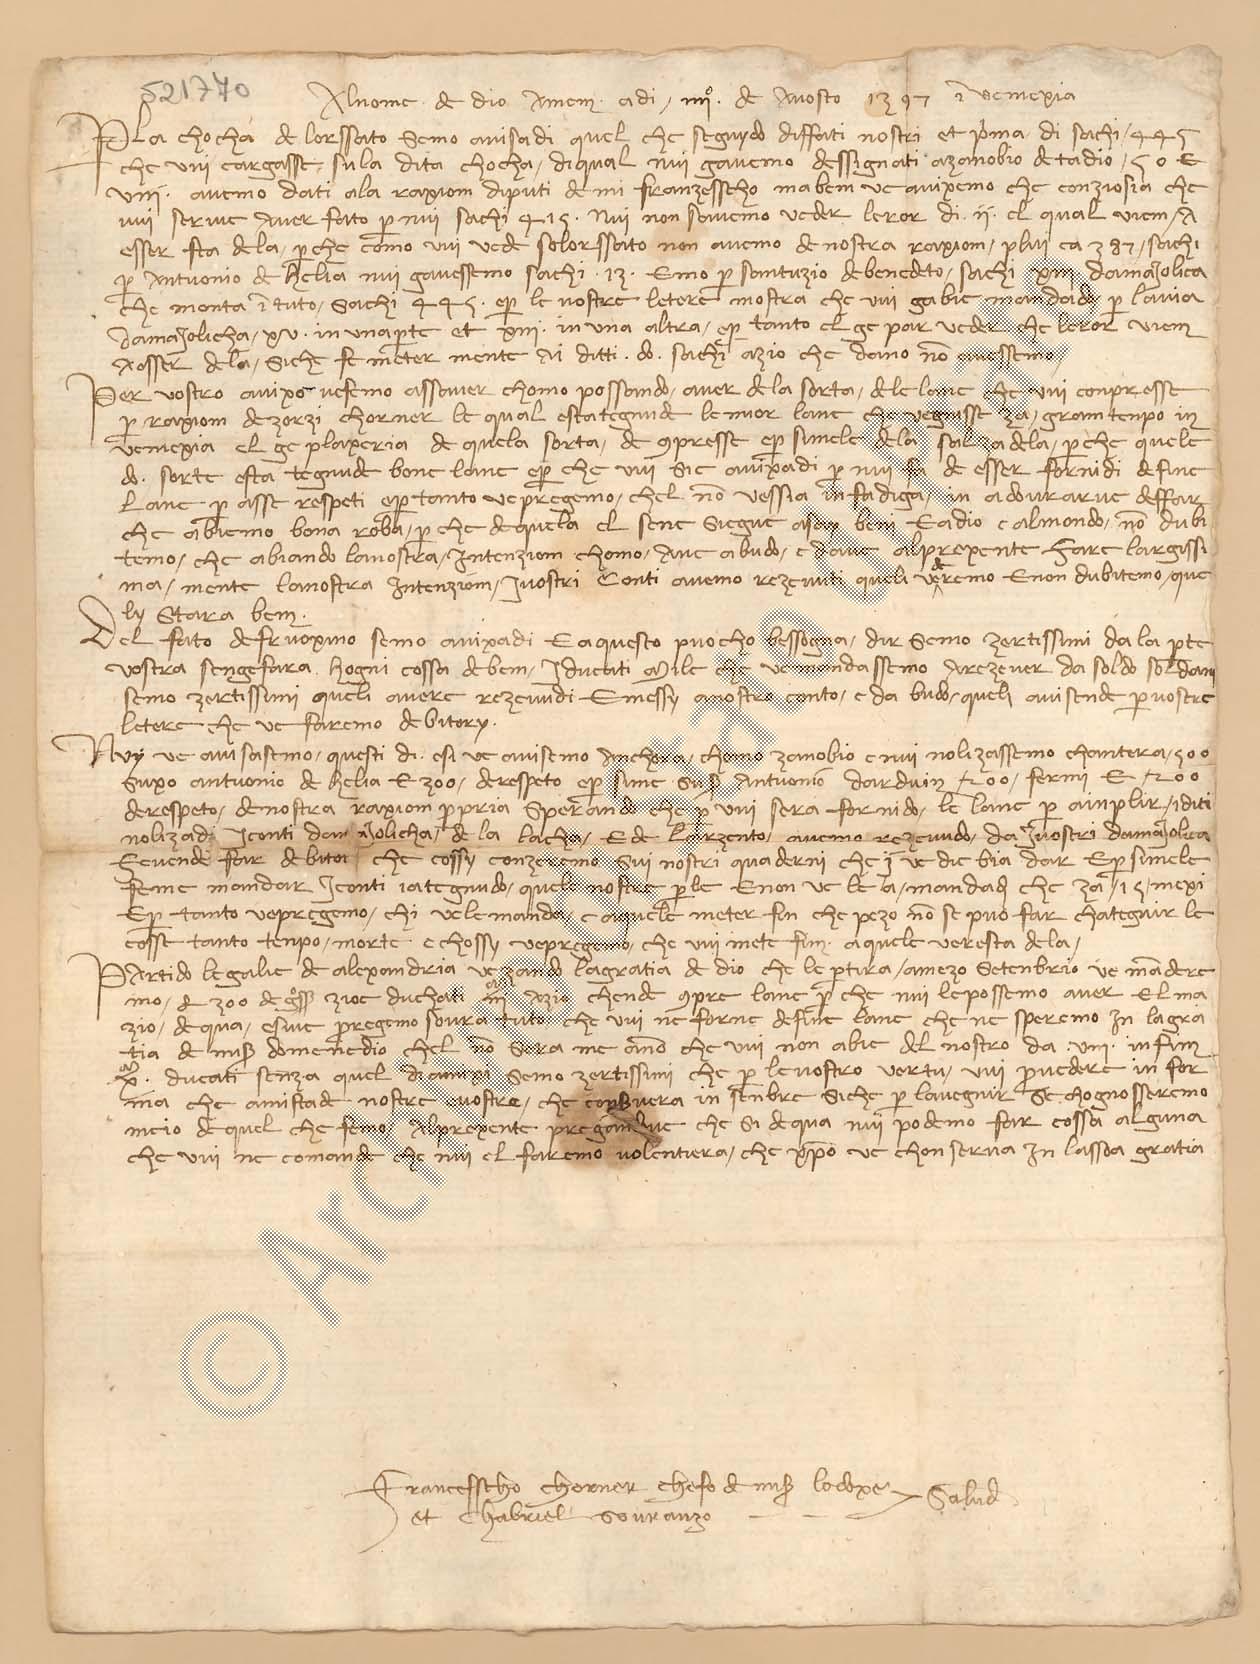 521770
Al nome de dio Amem adi / iiijº de Avosto 1397 i Venexia
P La chocha de lorssato semo avisadi quel che seguydo diffati nostri et prima di sachi / 445
che vui cargasse sula dita chocha / di qual nui gavemo dessignati a zanobio de tadio / 50 E
viiij. avemo dati ala raxiom diputi de mi franzesscho ma bem ve avixemo che conziosia che
vui scrive Aver fato p nui sachi 415. Nui non savemo veder leror di. ij. el qual viem / A
esser fta de la / p che como vui vede solorssato non avemo de nostra raxiom / plui ca 387 / sachi
p Antuonio de helia nui gavessemo sachi. 13. Emo p santuzio de benedeto / sachi xiij damajolica
che monta i tuto / sachi 445. ep le vostre letere mostra che vui gabie mandado p lavia
damajolicha / xv. in una pte et xiij. in una altra / ep tanto el ge par veder che leror viem
Aosser de la / siche fe meter mente Ai ditti. do. sachi azio che dano nō avessemo /
Per vostro avixo vesemo assaver chomo possando / aver de la sorta / de le lane che vui conpresse
p raxiom de zorzi chorner le qual esta tegnude le mior lane che vegnisse za / gram tenpo in
venexia el ge plaxeria de quela sorta / de 9presse ep simele dela salza dela / p che quele
do. sorte esta tegnude bone lane ep che vui sie avixadi p nui fa de esser fornidi de fine
lane p asse respeti ep tanto ve pregemo / chel nō vessia in fadiga / in adovrarve deffar
che abiemo bona roba / p che de quela el sene siegue asem beni E adio e almondo / nō dubi
temo / che abiando la nostra / Intenziom chomo / Ave abudo / e dave alprexente Fare largissi
ma / mente la nostra Intenziom / I vostri Conti avemo rezevuti queli vederemo E non dubitemo / que
ly Stara bem.
Del fato de fruoxino semo avixadi E a questo puocho bessogna / dir Semo zertissimi da la pte
vostra sengefara hogni cossa de bem / I ducati Mile che ve mandassemo A rezever da soldo soldani
semo zertissimi queli avere rezevudi E messy a nostro conto / e da budo / queli avisende p vostre
letere che ve faremo debitory.
Nuy ve avisassemo / questi di. esi ve avisemo Anchora / chomo zanobio e nui nolizassemo chantera / 500
suxo antuonio de helia E 300 / de respeto ep sine su s Antuonio darduin 200 / fermi E 200
de respeto / de nostra raxiom ppria Sperando che p vui sera fornido / le lane p ainplir / i diti
nolizadi I conti damajolicha / de la lacha / E de larzento / avemo rezevudo / da I vostri damajolica
E evende far debitor che cossy conzeremo Sui nostri quaderni che I ve die bia dar E p simele
feme mandar I conti iategnudo / quele nostre p le E non ve le a / mandadi che za / 15 / mexi
Ep tanto ve pregemo / chi ve le manda / e aquele meter fin che pezo nō se puo far chategnir le
cosse tanto tenpo / morte e chossy ve pregemo / che vui mete fim. a quele ve resta de la /
PArtido le galie de alexandria vezando la gratia de dio che le ptira / a mezo Setenbrio ve mādere
mo / 300 de zioe duchati Azio chende 9pre lane p che nui le possemo aver El na
zio / de qua / esive pregemo sovra tuto che vui ne forne de fine lane che ne speremo In la gra
tia de mis domenedio chel nō Sera me ano che vui non abie del nostro da viij. in fim
x. ducati senza quel Semo zertissimi che p le vostro vertu / vui pvedere in for
ma che amistade nostre vostre / che conservera in senbre Siche p lavegnir Se chognosseremo
meio de quel che femo Alprexente pregandove che Si de qua nui podemo far cossa alguna
che vui ne comande che nui el faremo volentiera / che xpo ve chonserva In lassoa gratia
Francesscho chorner chefo de mis lodoxe
et Ghabriel Souranzo Salud
© Archivio di Stato di Prato